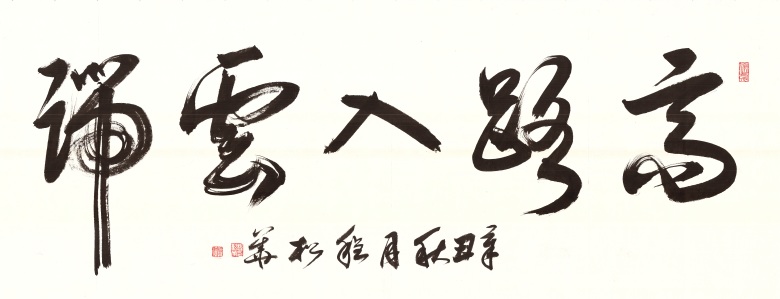 高路入雲端
辛丑秋月程松華